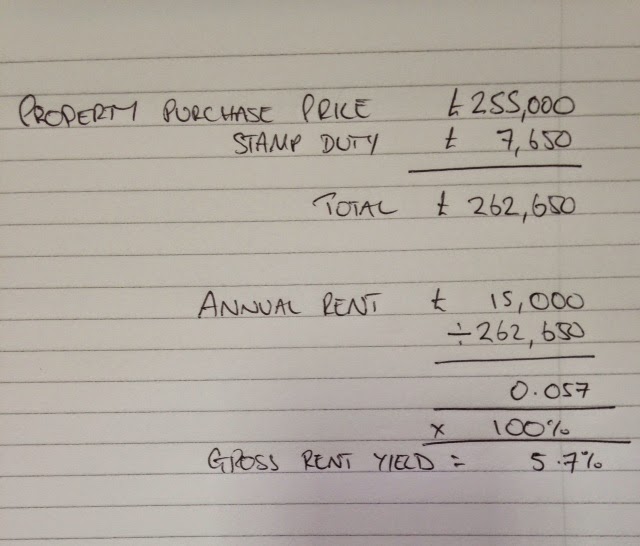 PROPERTY PURCHASE PRICE £255,000
STAMP DUTY £ 7,650
TOTAL £ 262,650
ANNUAL RENT £ 15,000
÷262,650
0.057
x 100%
GROSS RENT YIELD = 5.7%